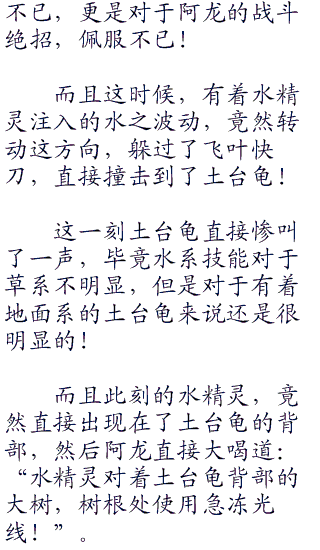 不已，更是对于阿龙的战斗
绝招，佩服不已！
而且这时候，有着水精
灵注入的水之波动，竟然转
动这方向，躲过了飞叶快
刀，直接撞击到了土台龟！
这一刻土台龟直接惨叫
了一声，毕竟水系技能对于
草系不明显，但是对于有着
地面系的土台龟来说还是很
明显的！
而且此刻的水精灵，竟
然直接出现在了土台龟的背
部，然后阿龙直接大喝道：
“水精灵对着土台龟背部的
大树，树根处使用急冻光
线！”。